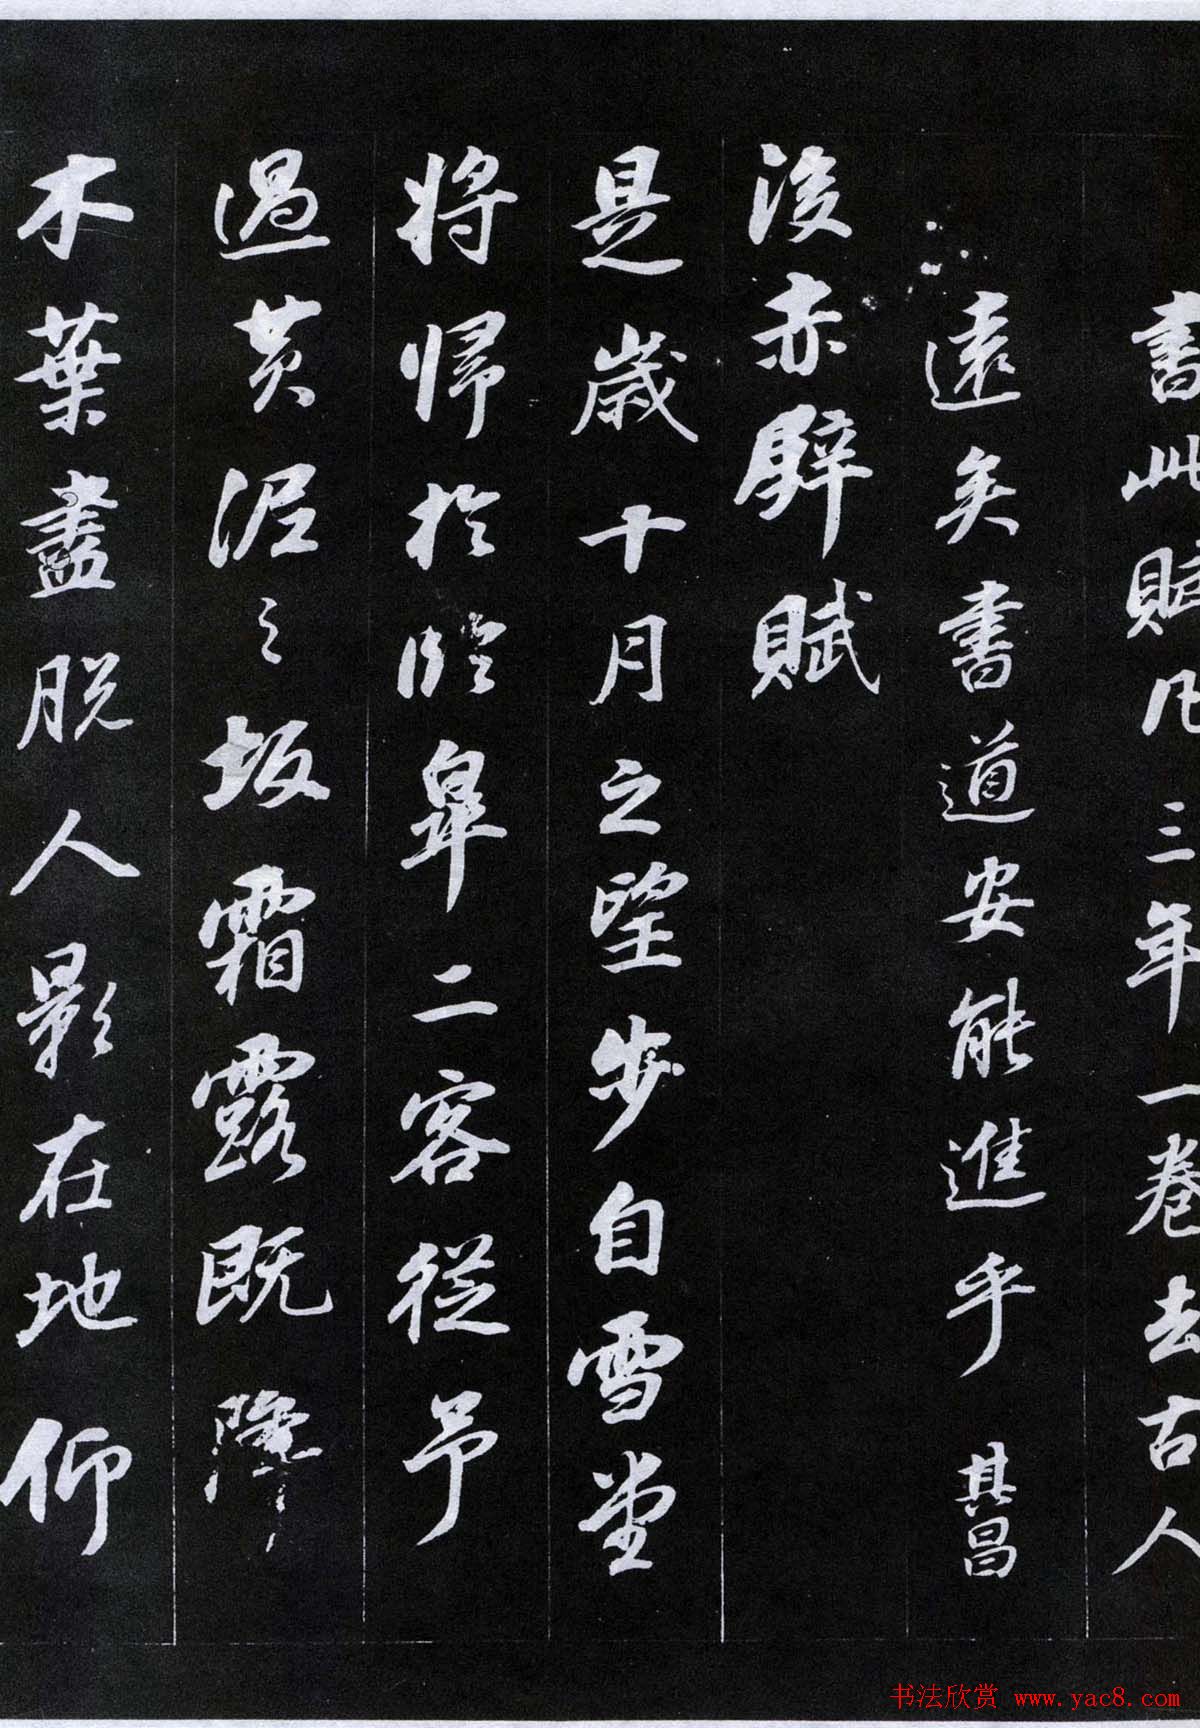 書此賦凡三年一卷去古人
遠矣書道安能進乎 其昌
後赤壁賦
是歲十月之望步自雪堂
將歸於臨皋二客從予
過黃泥之坂霜露既降
木葉盡脫人影在地仰
书法欣赏 www.yac8.com